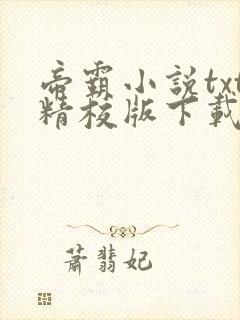 帝霸小説txt
精校版下載
蕭翡妃